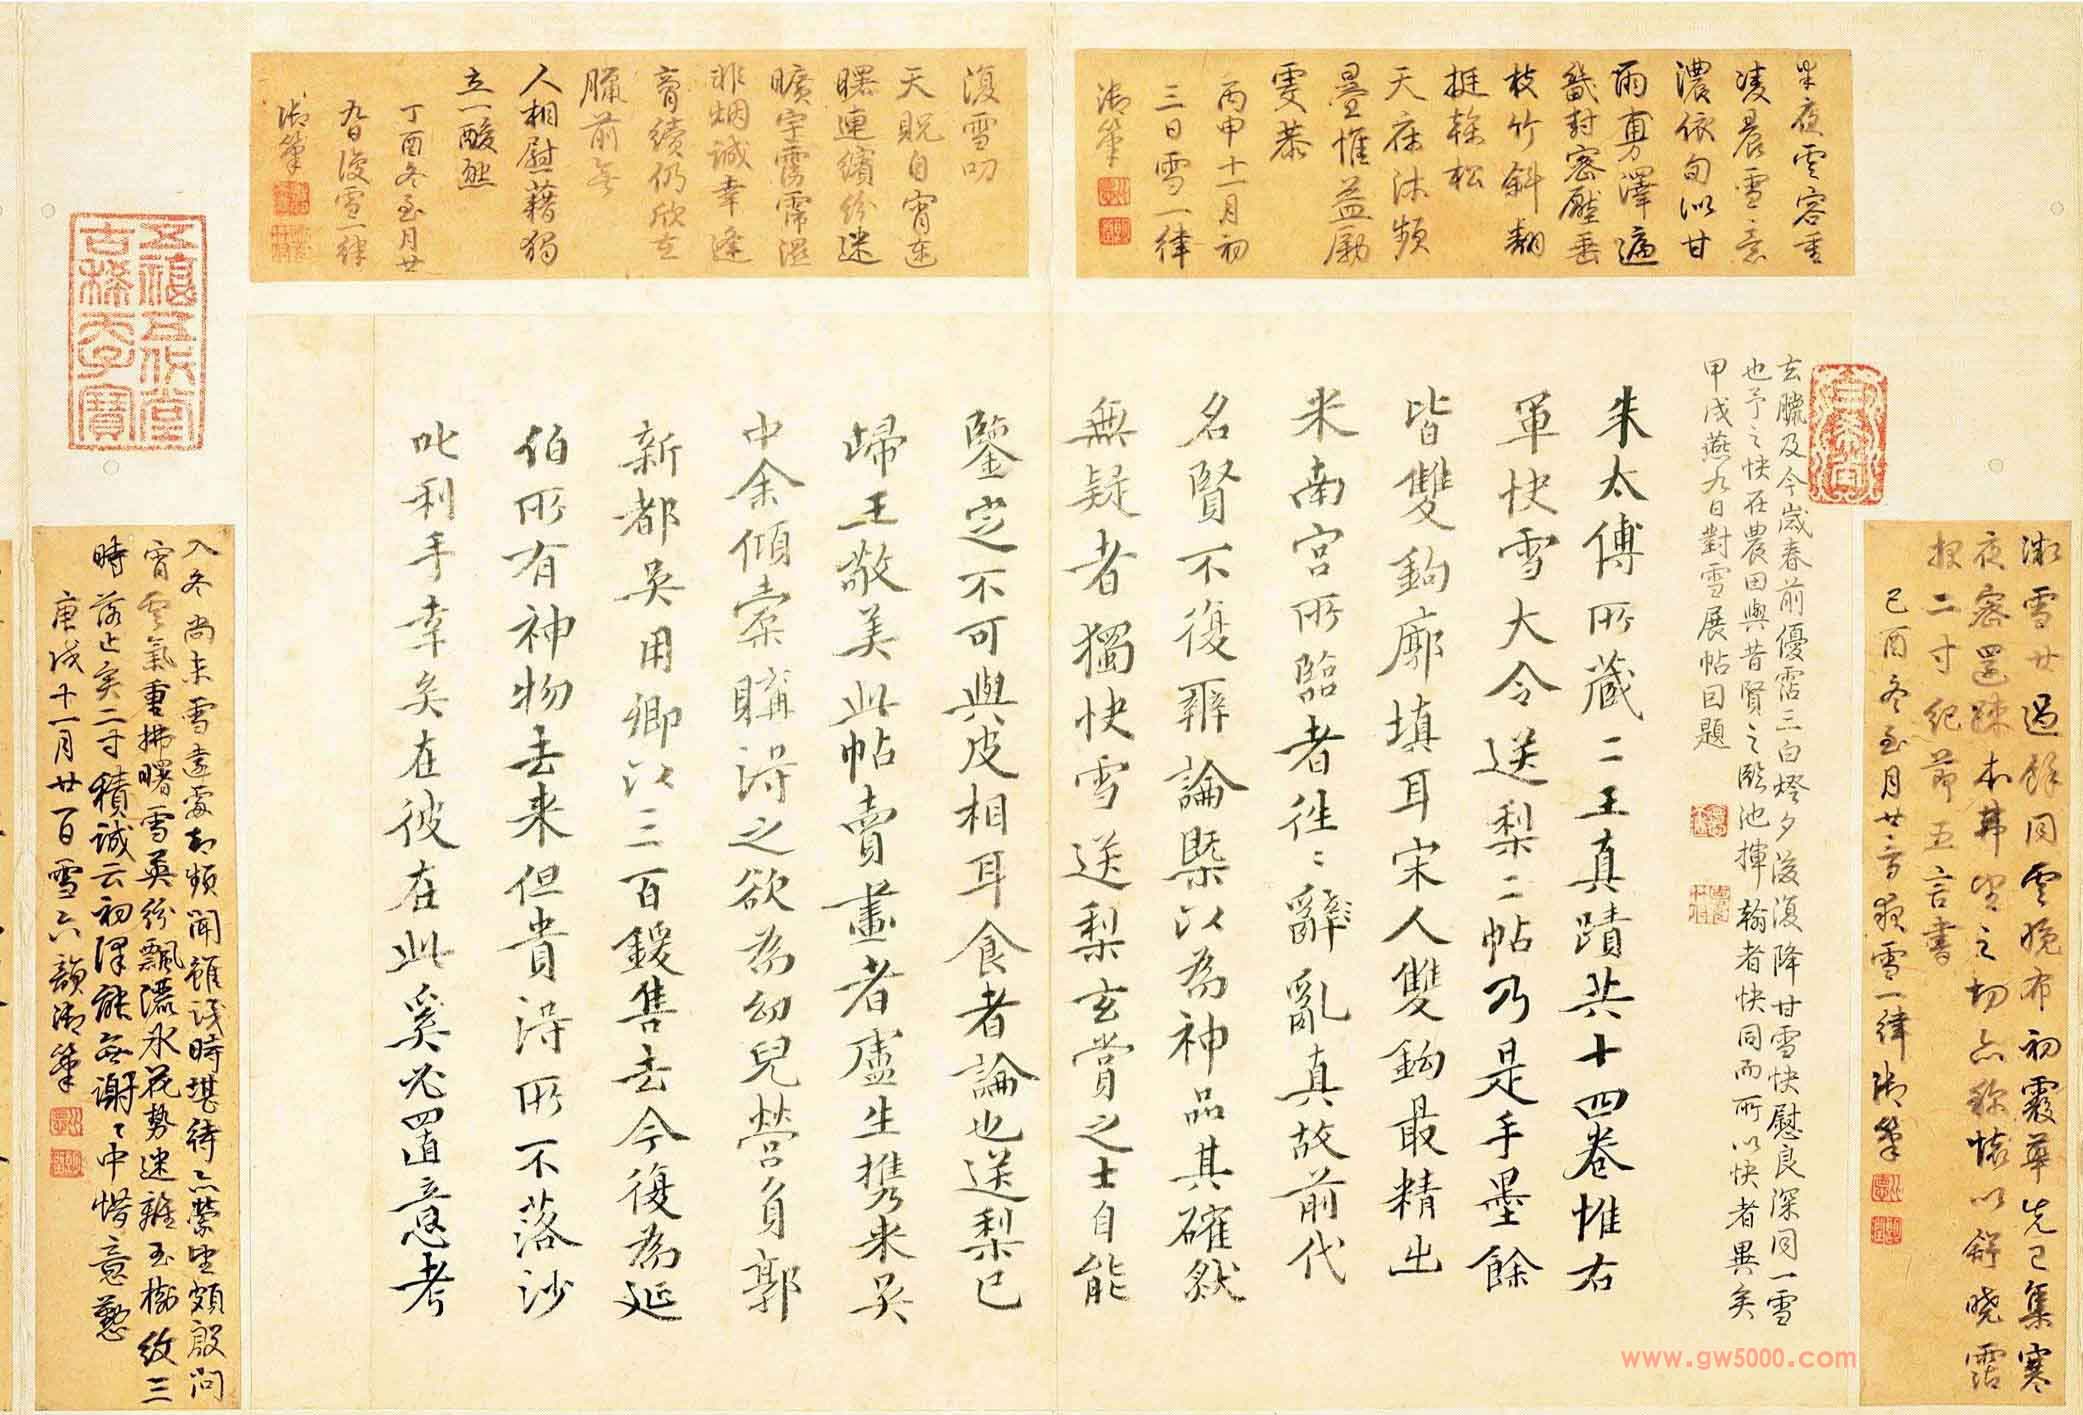 半夜雲容重
凌晨雪意
濃依旬似甘
雨專澤遍
畿封密壓垂
枝竹斜翻
挺榦松
天庥沐頻
疊惟益勵
雯恭
丙申十一月初
三日雪一律
御筆
復雪叨
天貺自宵連
曙連繽紛迷
曠宇霑霈溫
非烟誠幸逢
膏續仍欣在
臘前無
人相慰藉獨
立一酸然
丁酉冬至月廿
九日復雪一律
御筆
微雪廿過餘同雲晚布初霰華先已集寒
夜密還疎本弗望之切亦穪懷以舒曉霑
報二寸紀節五言書
己酉冬至月廿二前夜雪一律御筆
玄臘及今歲春前優霑三白燈夕後復降甘雪快慰良深同一雪
也予之快在農田與昔賢之臨池揮翰者快同而所以快者異矣
甲戌燕九日對雪展帖因題
朱太傅所藏二王真蹟共十四卷惟右
軍快雪大令送梨二帖乃是手墨餘
皆雙鉤廓填耳宋人雙鉤最精出
米南宮所臨者往〻辭亂真故前代
名賢不復辨論槩以為神品其確然
無疑者獨快雪送梨玄賞之士自能
鑒定不可與皮相耳食者論也送梨已
歸王敬美此帖賣畫者盧生携来吳
中余傾橐購得之欲為幼兒營負郭
新都吳用卿以三百鍰售去今復為延
伯所有神物去来但貴得所不落沙
叱利手幸矣在彼在此奚必置意考
五福五代堂
古稀天子寶
入冬尚未雪遠處却頻聞雖淺時堪待亦縈望頗殷問
宵雲氣重拂曙雪英紛飄灑氷花勢迷離玉樹紋三
時落止矣二寸積誠云初澤能無謝〻中惜意懃
庚戌十一月廿一日雪六韻御筆
www.gw5000.com